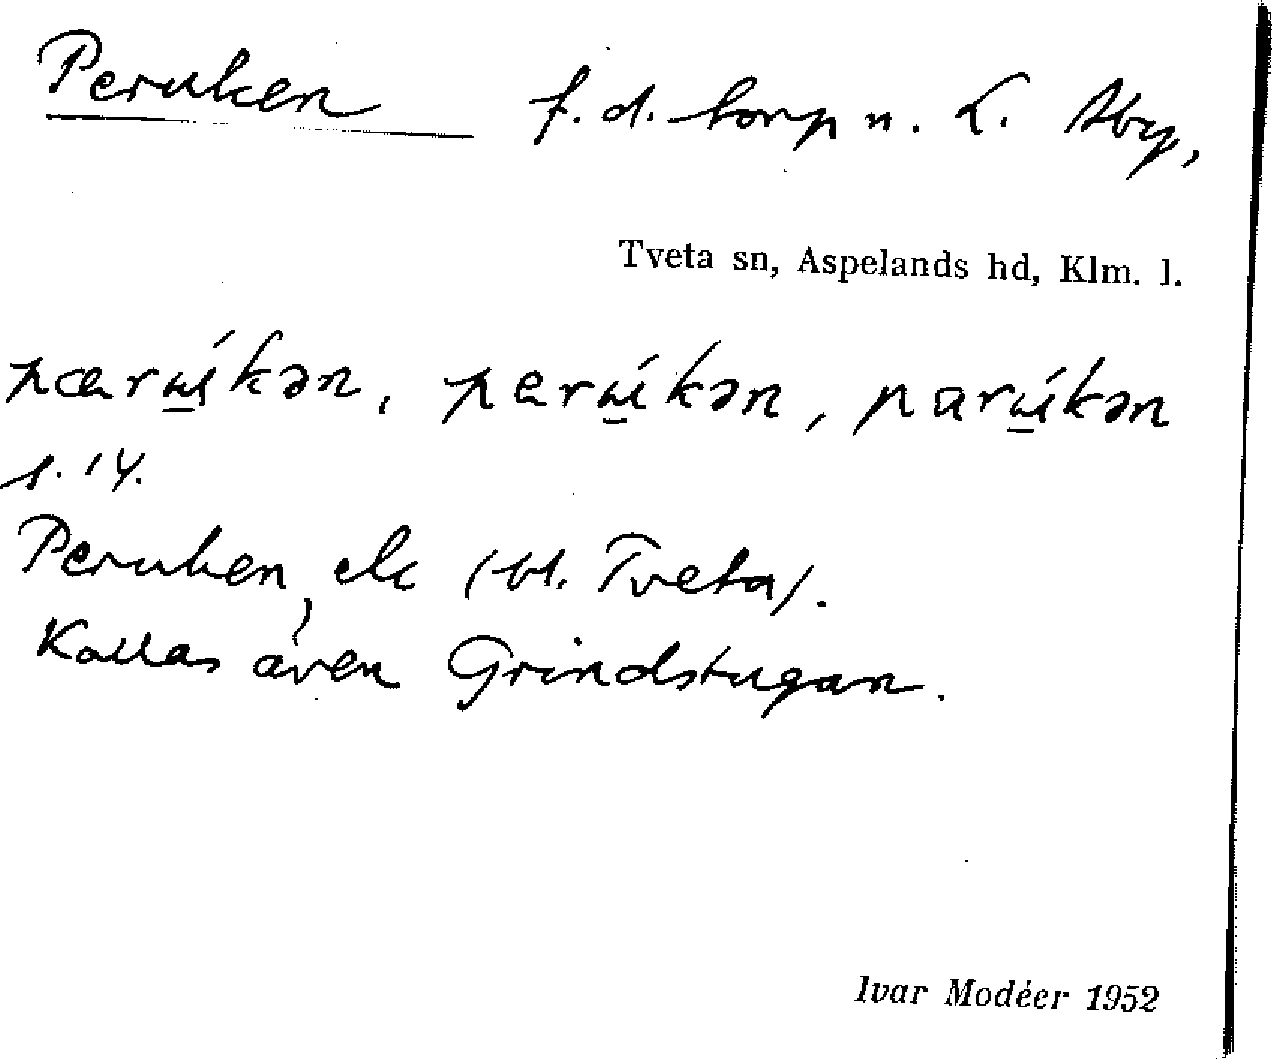 Peruken f.d. torp u. L. Åby,
Tveta sn, Aspelands hd, Klm. l.
pærɯ́kən, perɯ́kən, parɯ́kən
s. 14.
Peruken, ek (bl. Tveta).
Kallas även Grindstugan.
Ivar Modéer 1952